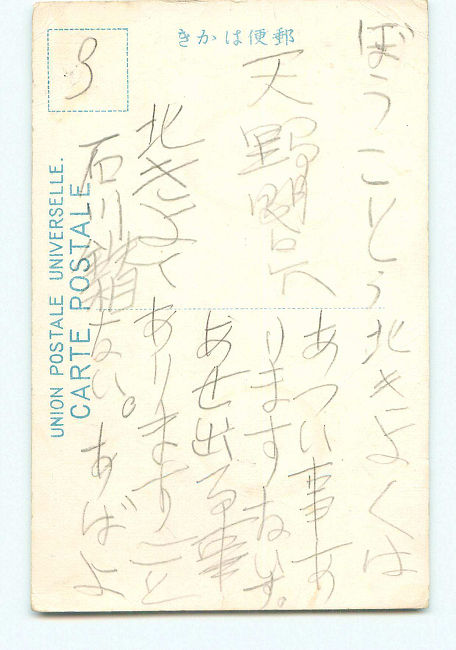 郵便はかき
ぼうことう 北きよくは
天野
あつい事あ
りますない。
あせ出る事
北きよく ありますこと
石川 ない。あばよ
UNION POSTALE UNIVERSELLE.
CARTE POSTALE